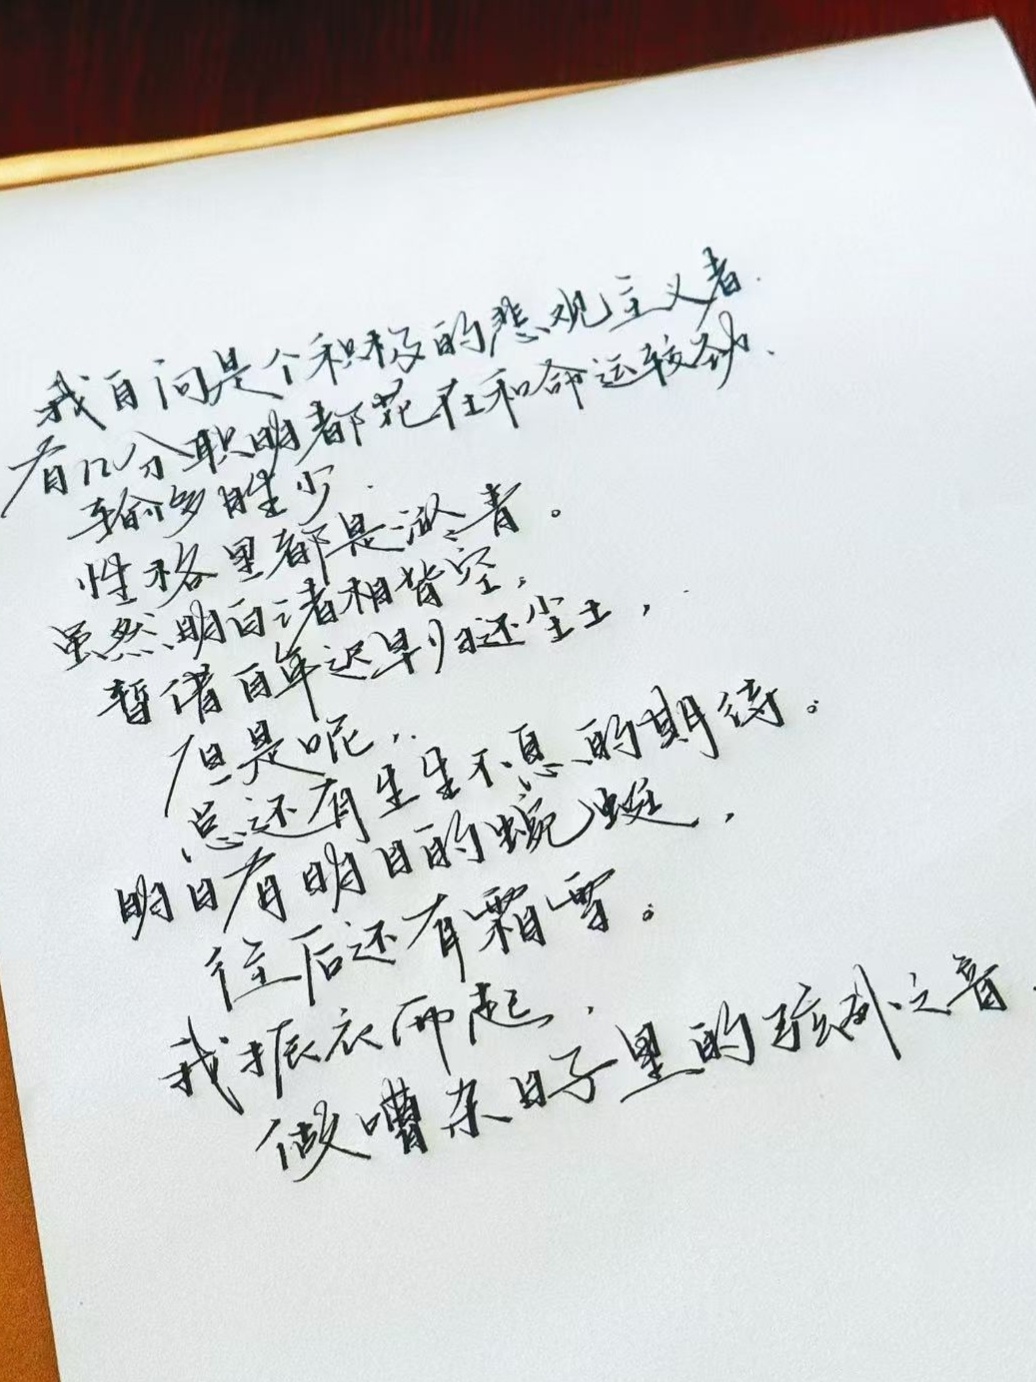 我自问是个积极的悲观主义者.
有几分聪明都花在和命运较劲、
输多胜少.
性格里都是沉青。
虽然明白诸相皆空,
暂借百年迟早归还尘土,
但是呢,..
总还有生生不息的期待。
明日有明日的蜿蜒,
往后还有霜雪。
我振衣而起,
做嘈杂日子里的弦外之音.